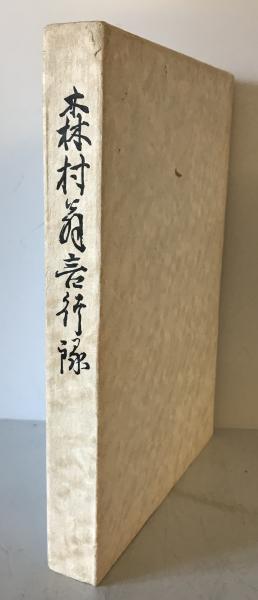 森村翁言行録